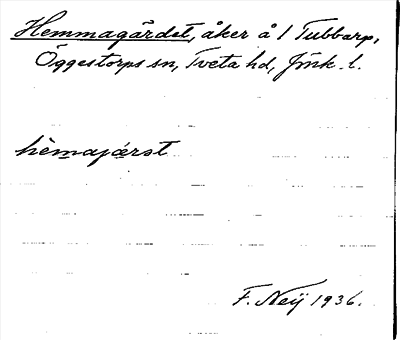 Hemmagärdet, åker å 1 Tubbarp,
Öggestorps sn, Tveta hd, Jmk. l.
F. Neij 1936.